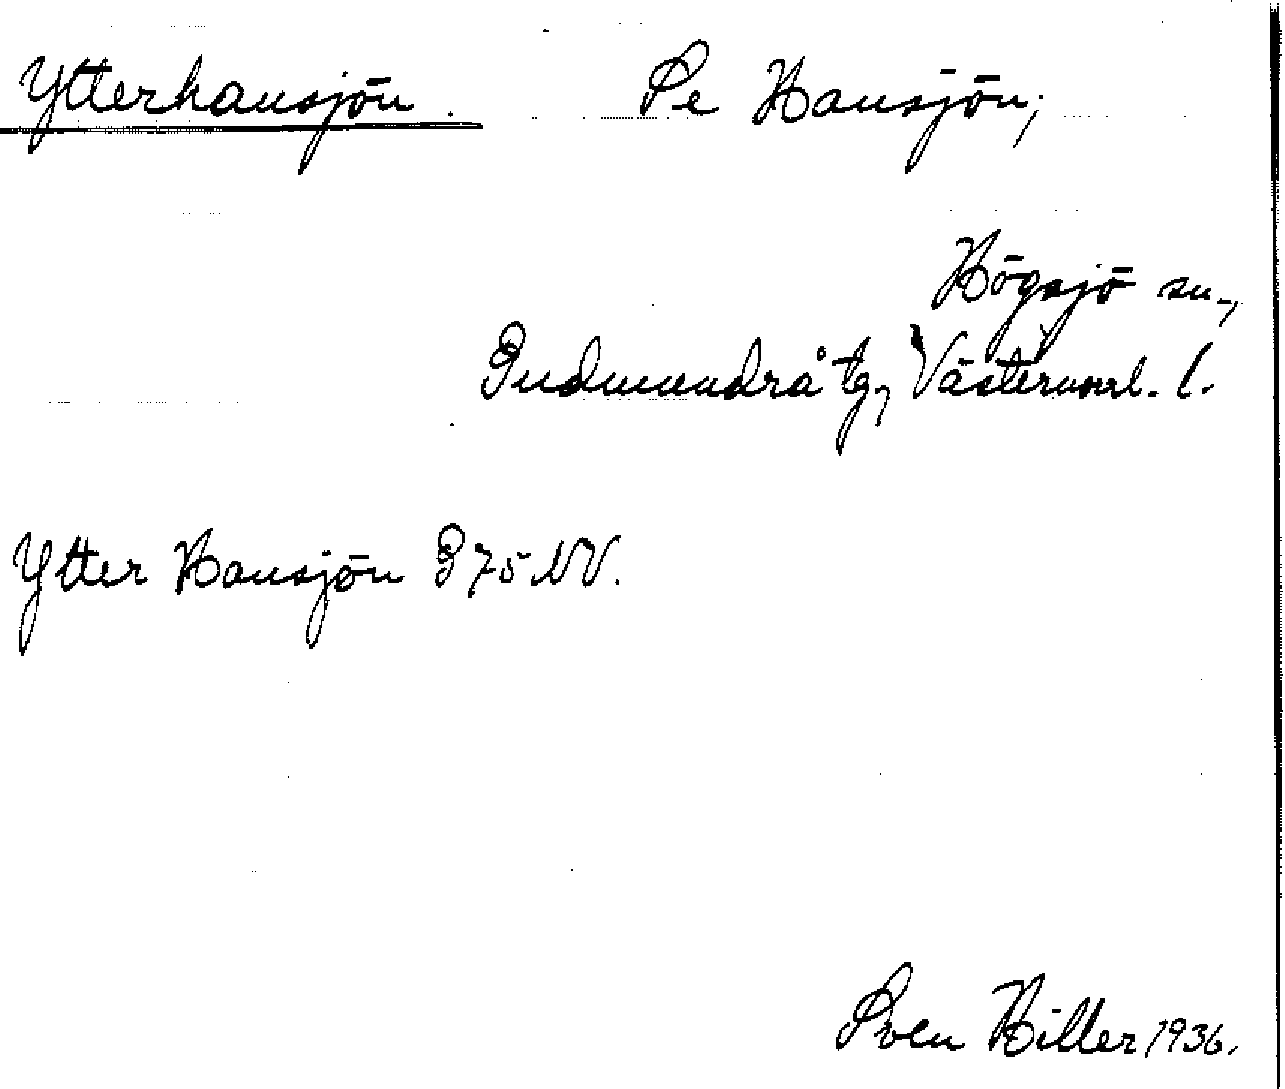 Ytterhansjön. Se Hansjön,
Högsjö sn.,
Gudmundrå tg, Västernorrl. l.
Ytter Hansjön G 75 NV.
Sven Hiller 1936.